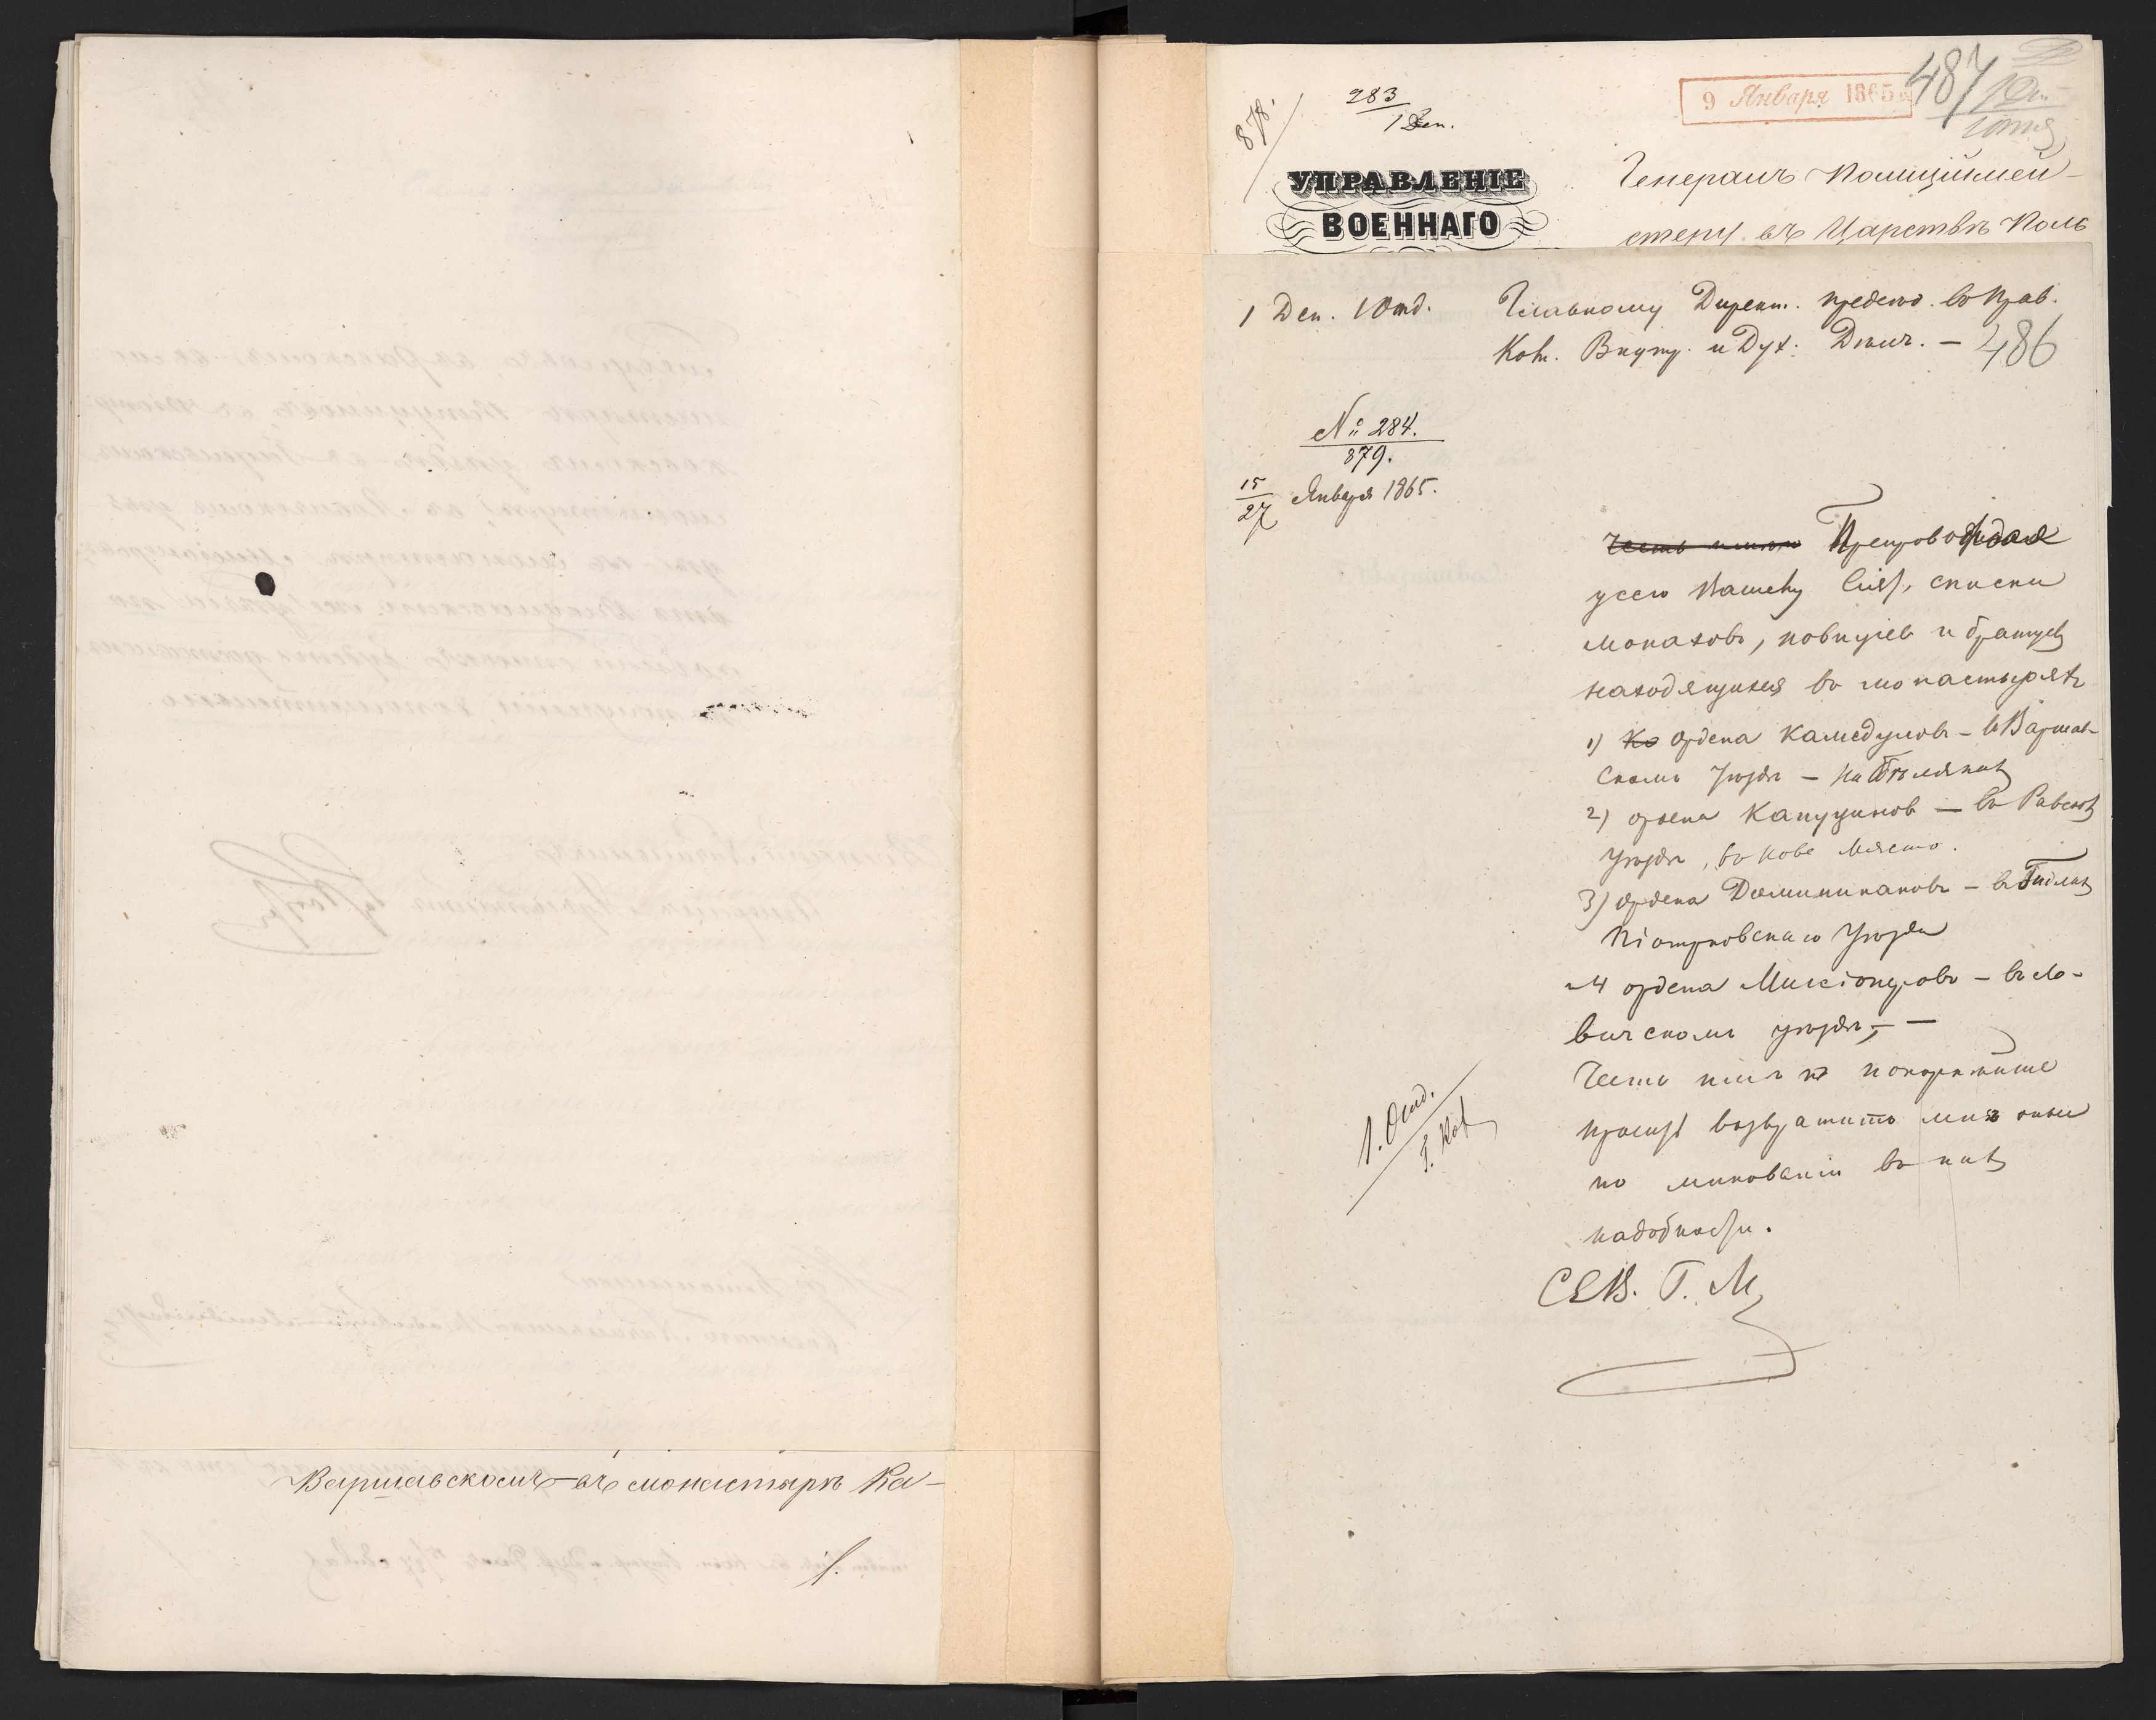 Варшавскомъ – въ монастырѣ Ка-
878.
283
1 Деп.
9 Января 1865
487
УПРАВЛЕНІЕ
ВОЕННАГО
Генералъ Полиціймей-
стеру въ Царствѣ Поль
1 Деп. 1 Отд.
Главному Директ. предсѣд. въ Прав.
Ком. Внутр. и Дух. Дѣлъ. –
486
№ 284.
879.
15
27 Января 1865.
Честь имѣю Препровождая
у сего Вашему Сият. списки
монаховъ, новицiевъ и братцевъ
находящихся въ монастыряхъ
1) Ка ордена Камедуловъ – въ Варшав-
скомъ Уѣздѣ – на Бѣлянахъ
2) ордена Капуциновъ – въ Равскомъ
Уѣздѣ, въ Нове Място.
3) ордена Доминикановъ – въ Гидляхъ
Піотрковскаго Уѣзда
и 4 ордена Миссіонеровъ – въ Ло-
вичскомъ уѣздѣ, –
Честь имѣю покорнѣйше
просить возвратить мнѣ оные
по минованіи въ нихъ
надобности.
1. Отд.
С Е В. Г. М.